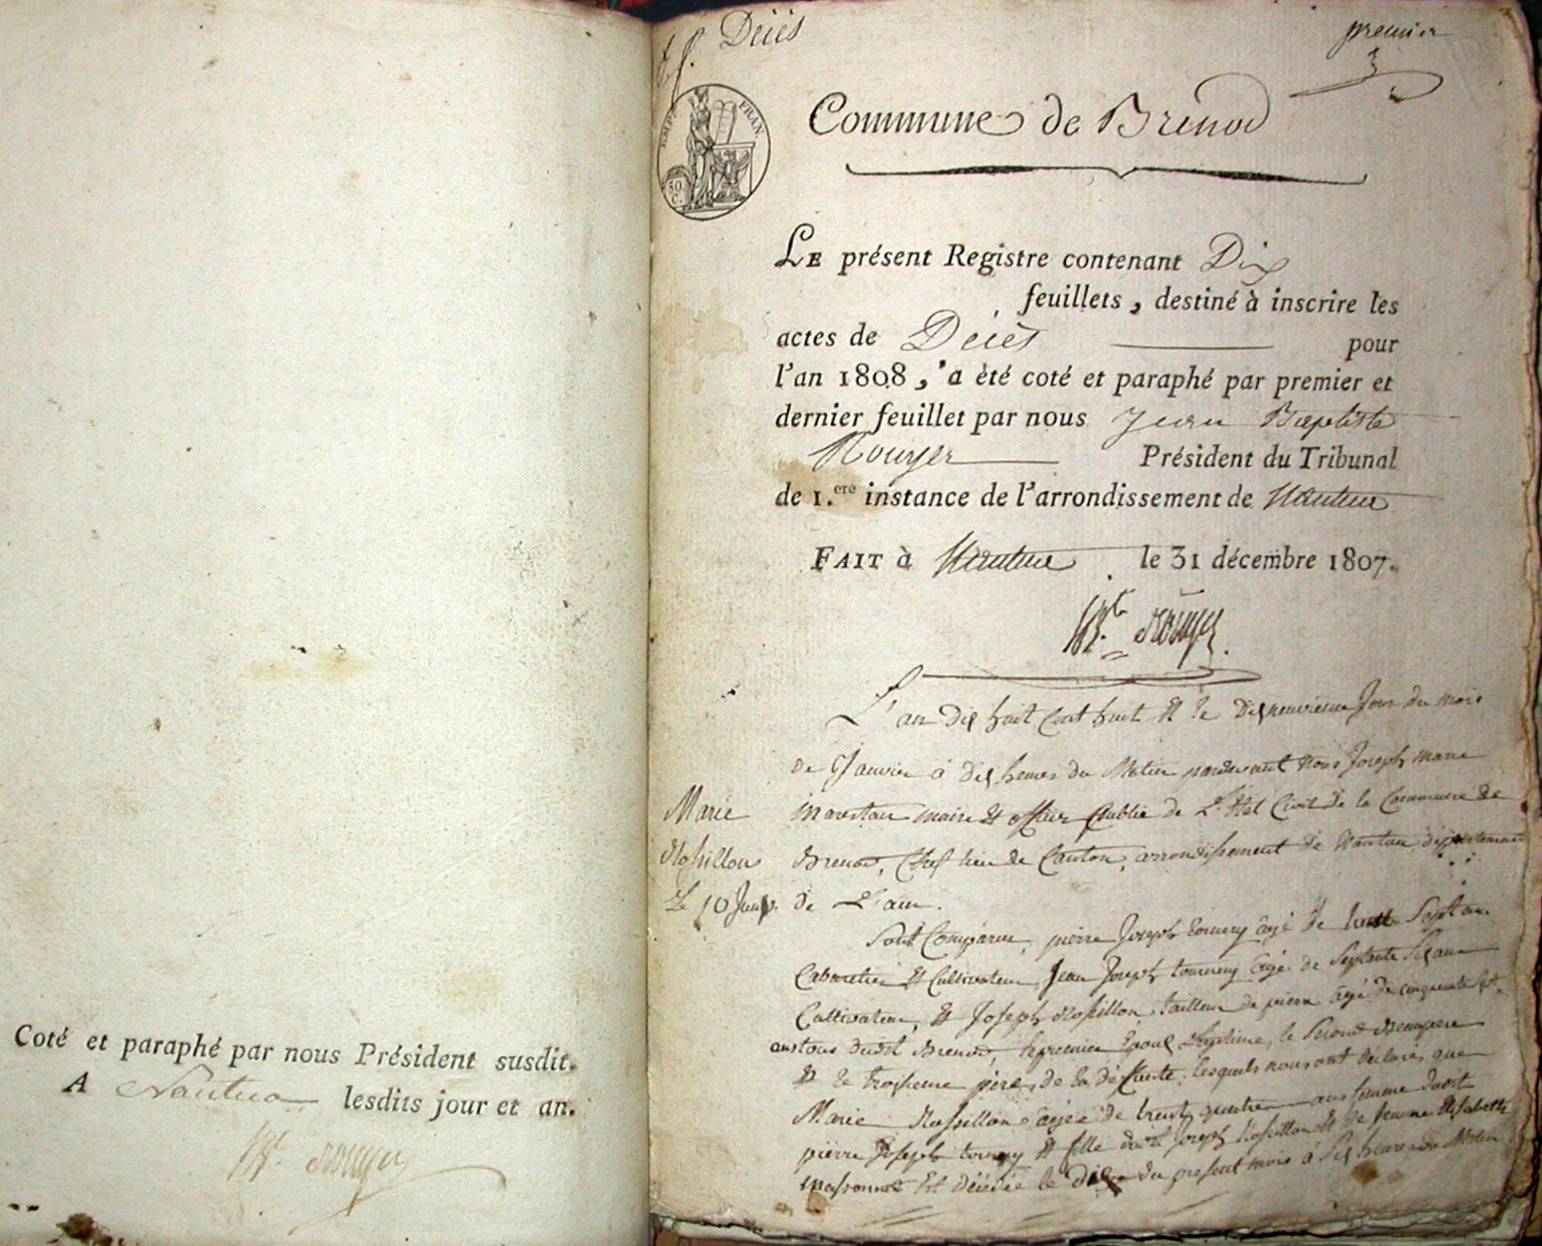 Coté et paraphé par nous Président susdit.
A Nantua lesdits jour et an.
Bte Rouyer
Décès
premier
EMP. FRAN.
50 C.
Commune de Brenod
LE présent Registre contenant Dix
feuillets, destiné à inscrire les
actes de Décès pour
l'an 1808, a été coté et paraphé par premier et
dernier feuillet par nous Jean Baptiste
Rouyer Président du Tribunal
de 1.ere instance de l'arrondissement de Nantua
FAIT à Nantua le 31 décembre 1807.
Bte Rouyer
L'an dix huit cent huit et le dixneuvieme Jour du mois
de Janvier à dix heures du Matin pardevant Nous Joseph Marie
maire et officier public de L'Etat Civil de la Commune de
Brenod, Chef lieu de Canton, arrondissement de Nantua, département
de L'ain.
Marie
Rossillon
Le 10 Janv.
Sont Comparu, pierre Joseph tournery âgé de trente Sept ans
Cabaretier et Cultivateur, Jean Joseph tournery âgé de Septante Six ans
Cultivateur, et Joseph Rossillon, tailleur de pierre âgé de cinquante Sept
ans tous dudit Brenod, le premier Epoux, le Second Beaupere
et le troisieme père, de la défunte; lesquels nous ont déclaré que
Marie Rossillon âgée de trente quatre ans femme dudit
pierre Joseph tournery et fille dudit Joseph Rossillon et de Jeanne Elisabeth
Est décédée le Dix du présent mois à Six heures du Matin